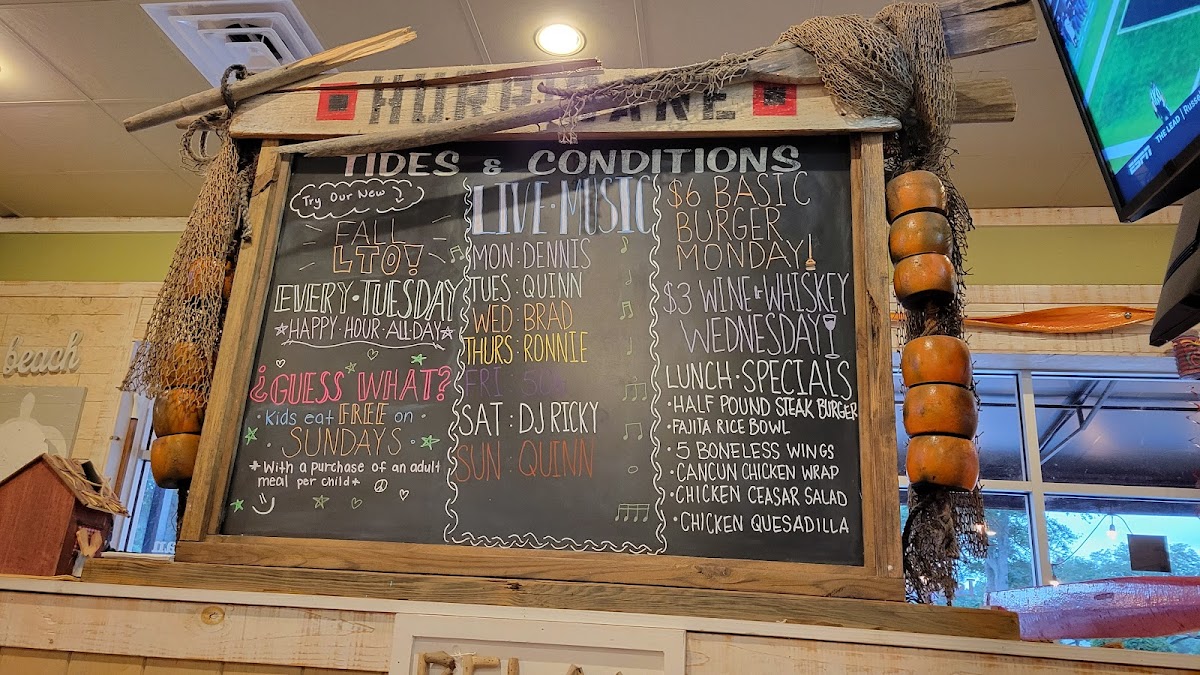 HURRICANE
TIDES & CONDITIONS
Try Our New
FALL
LTO!
EVERY·TUESDAY
HAPPY·HOUR·ALL·DAY
¿GUESS WHAT?
·Kids eat FREE on·
·SUNDAYS·
*With a purchase of an adult
meal per child*
LIVE·MUSIC
MON:DENNIS
TUES:QUINN
WED:BRAD
THURS:RONNIE
FRI:
SAT:DJ RICKY
SUN:QUINN
$6 BASIC
BURGER
MONDAY!
$3 WINE & WHISKEY
WEDNESDAY!
LUNCH·SPECIALS
·HALF POUND STEAK BURGER
·FAJITA RICE BOWL
·5 BONELESS WINGS
·CANCUN CHICKEN WRAP
·CHICKEN CEASAR SALAD
·CHICKEN QUESADILLA
beach
THE LEAD
ESPN